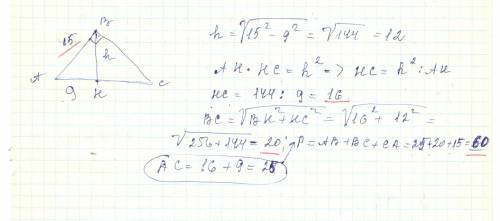 B
15
h
A
9
H
C
h = √15² - 9² = √144 = 12
AH · HC = h² => HC = h² : AH
HC = 144 : 9 = 16
BC = √BH² + HC² = √16² + 12² =
√256 + 144 = 20; P = AB + BC + CA = 25+20+15=60
AC = 16 + 9 = 25